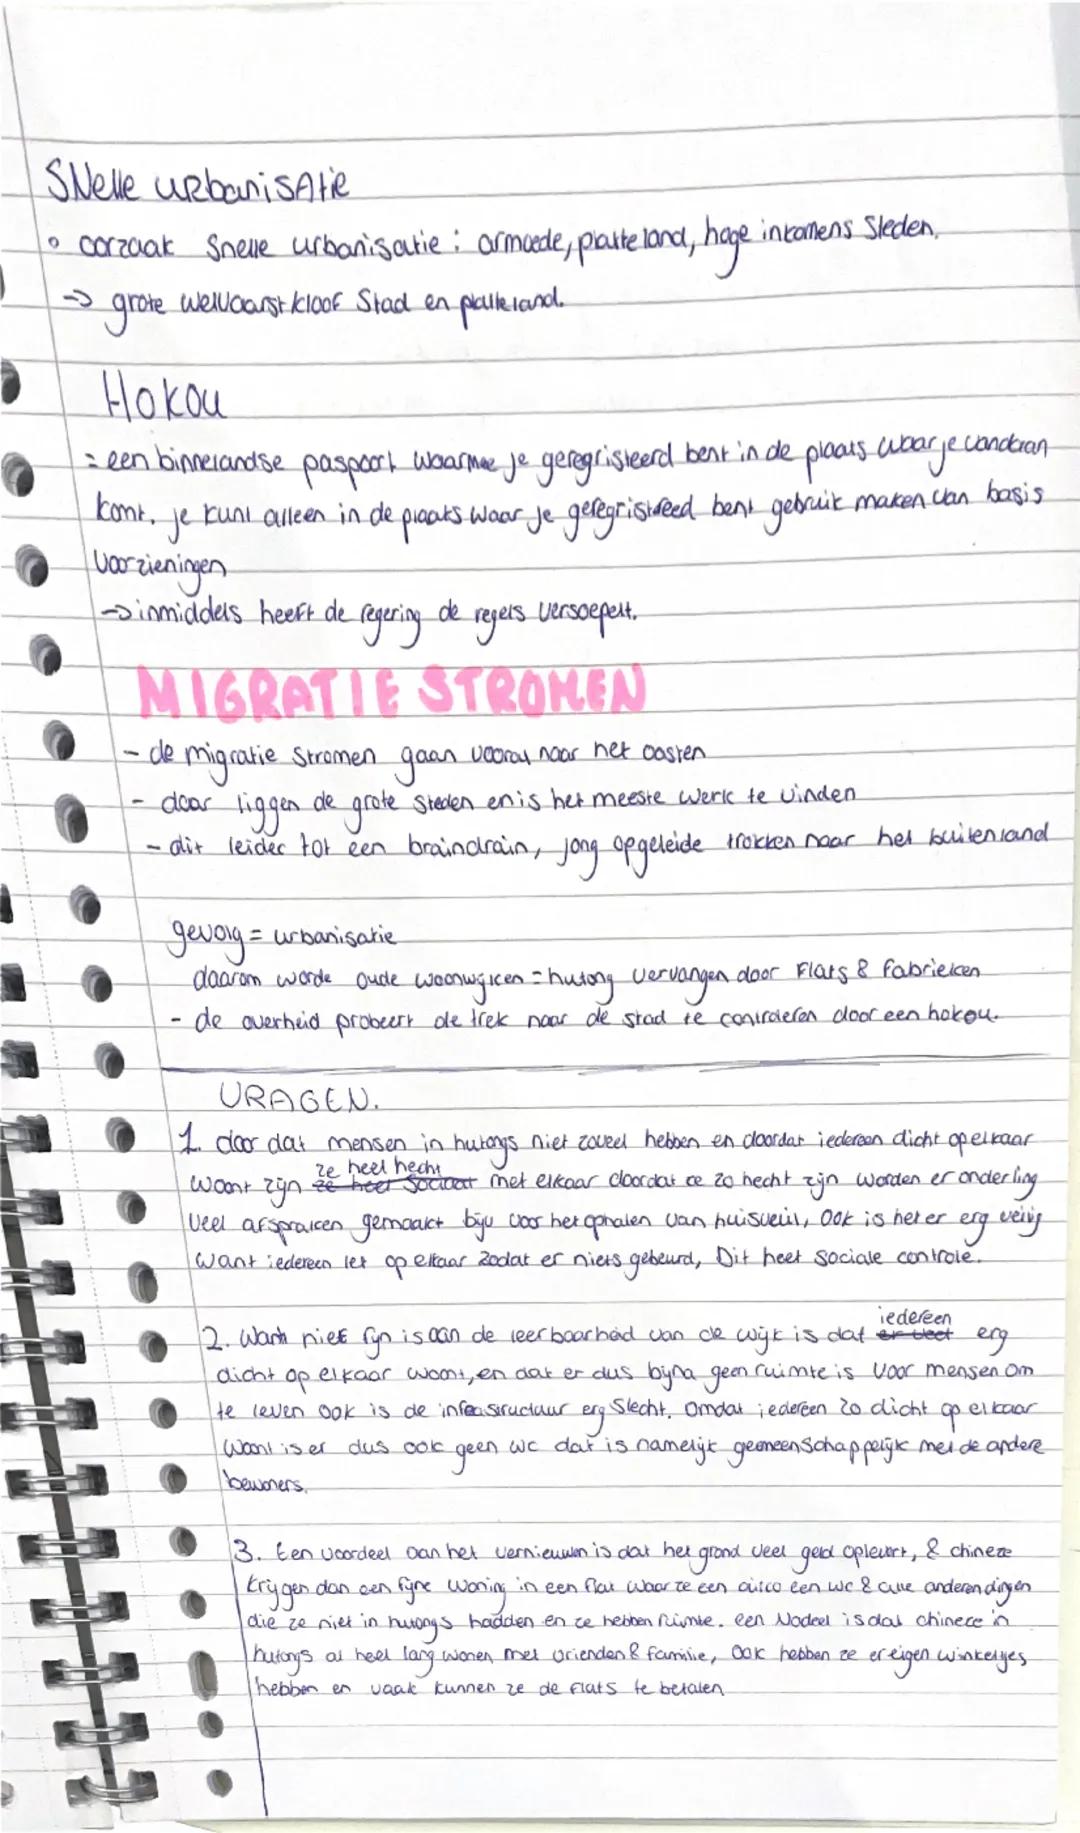 SNelle urbanisAtie
° oorzaak Snelle urbanisatie : armoede, platteland, hoge inkomens Steden.
-> grote welvaarstkloof Stad en platteland.
Hokou
= een binnelandse paspoort waarmee je geregristeerd bent in de plaats waar je vandaan
komt. je kunt alleen in de plaats waar je geregristreed bent gebruik maken van basis
voorzieningen
-> inmiddels heeft de regering de regels versoepelt.
MIGRATIE STROMEN
- de migratie Stromen gaan vooral naar het oosten
- daar liggen de grote steden en is het meeste werk te vinden
- dit leider tot een braindrain, jong opgeleide trokken naar het buitenland
gevolg = urbanisatie
daarom worde oude woonwijken = hutong vervangen door Flats & fabrieken
- de overheid probeert de trek naar de stad te controleren door een hokou.
VRAGEN.
1. door dat mensen in hutongs niet zoveel hebben en doordat iedereen dicht op elkaar
woont zijn ze heel hecht met elkaar doordat ze zo hecht zijn worden er onderling
veel afspraken gemaakt bijv voor het ophalen van huisvuil, Ook is het er erg veilig
want iedereen let op elkaar zodat er niets gebeurd, Dit heet sociale controle.
2. Want niet fijn is aan de leerbaarheid van de wijk is dat iedereen erg
dicht op elkaar woont, en dat er dus bijna geen ruimte is voor mensen om
te leven ook is de infrastructuur erg slecht. Omdat iedereen zo dicht op elkaar
woont is er dus ook geen wc dat is namelijk gemeenschappelijk met de andere
bewoners.
3. Een voordeel aan het vernieuwen is dat het grond veel geld oplevert, & chineze
krijgen dan een fijne woning in een flat waar ze een wc & alle anderen dingen
die ze niet in hutongs hadden en ze hebben ruimte. een Nadeel is dat chineze in
hutongs al heel lang wonen met vrienden & familie, Ook hebben ze er eigen winkeltjes
hebben en vaak kunnen ze de flats te betalen